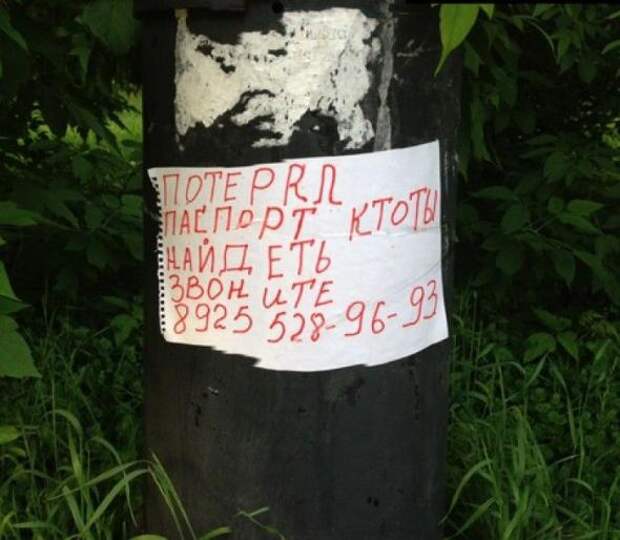 ПОТЕРЯЛ
ПАСПОРТ КТОТЫ
НАЙДЕТЬ
ЗВОНИТЕ
8925 528-96-93